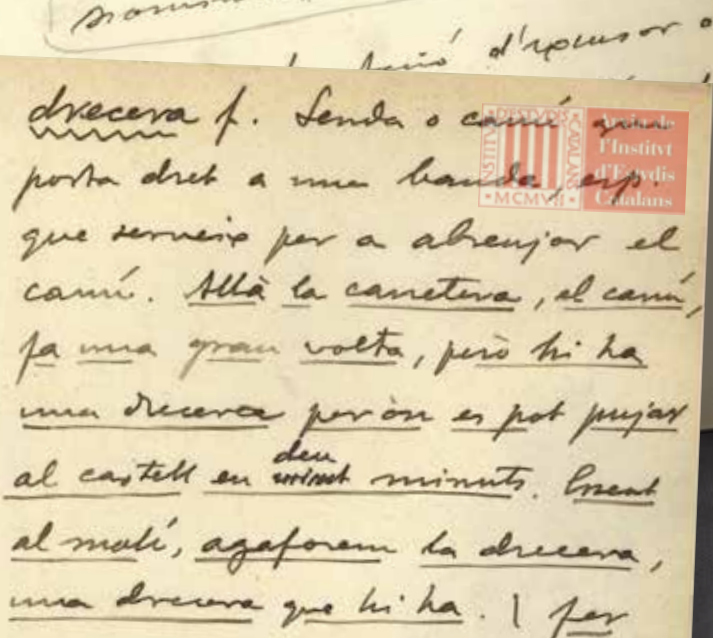 d'expulsar o
drecera f. Senda o camí que
porta dret a una banda, esp.
que serveix per a abreujar el
camí. Allà la carretera, el camí,
fa una gran volta, però hi ha
una drecera per on es pot pujar
al castell en deu minuts.
al molí, agaforem la drecera,
una drecera que hi ha. | fer
INSTITVT D'ESTVDIS CATALANS
MCMVII
Arxiu de
l'Institvt
d'Estvdis
Catalans